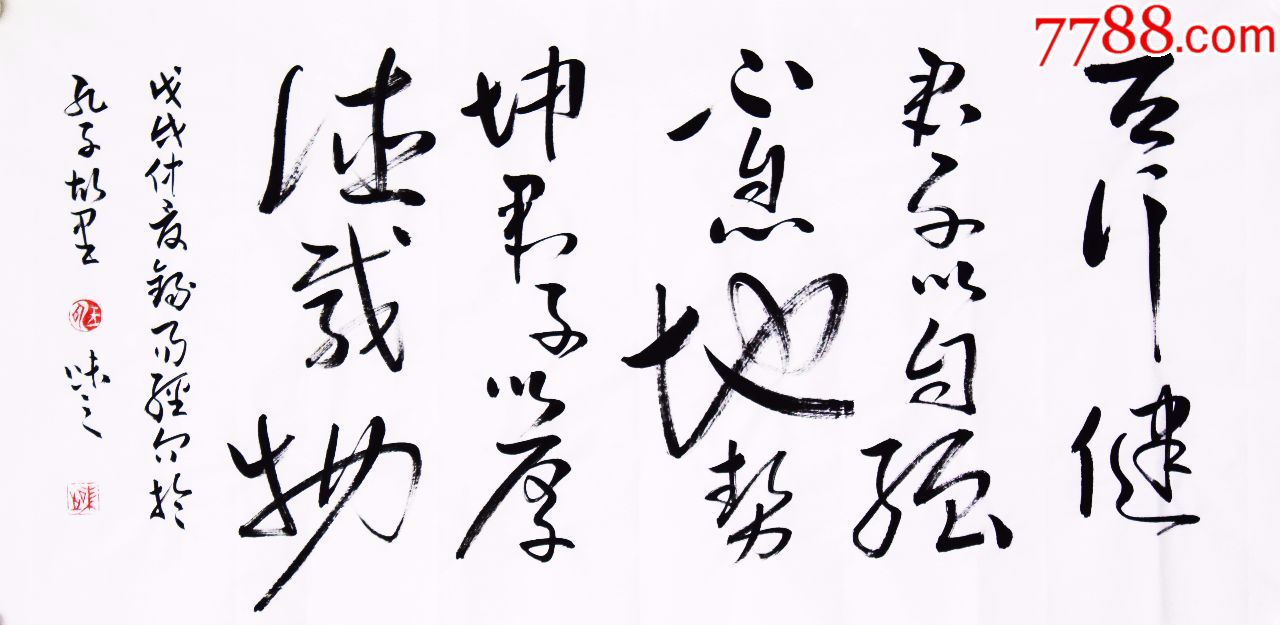 7788.com
天行健
君子以自强
不息地势
坤君子以厚
德载物
戊戌仲夏录易经句于
孔子故里